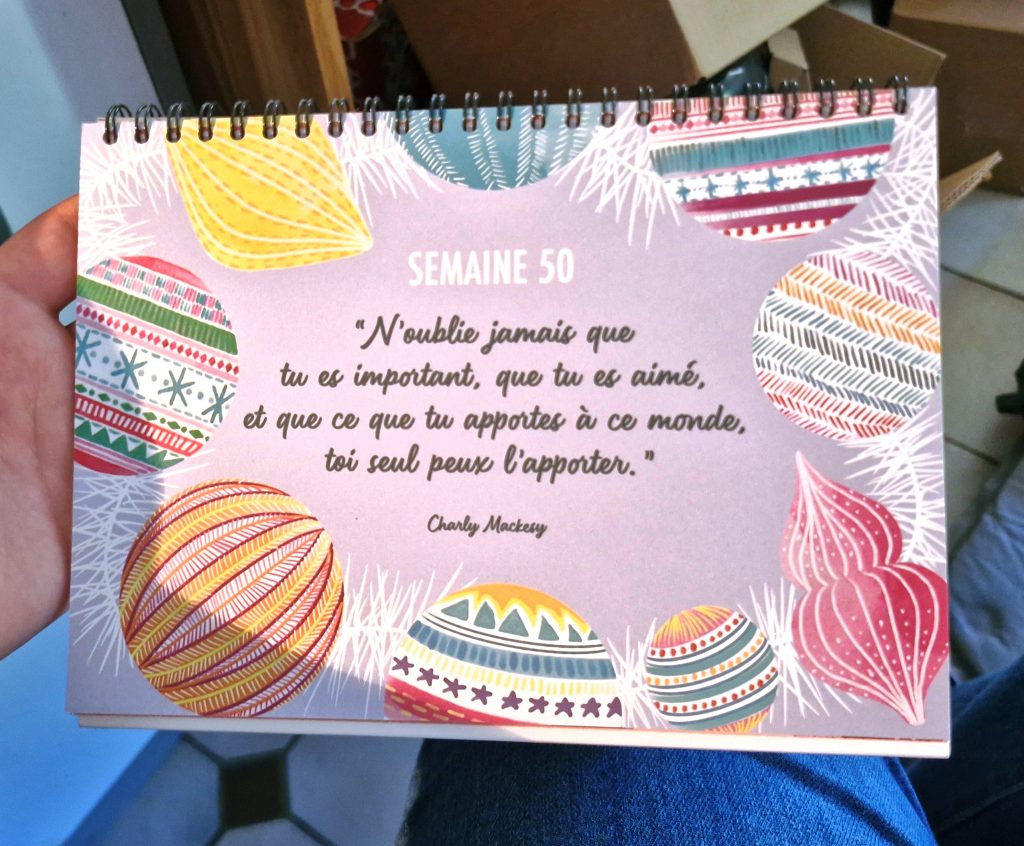 SEMAINE 50
"N'oublie jamais que
tu es important, que tu es aimé,
et que ce que tu apportes à ce monde,
toi seul peux l'apporter."
Charly Mackesy